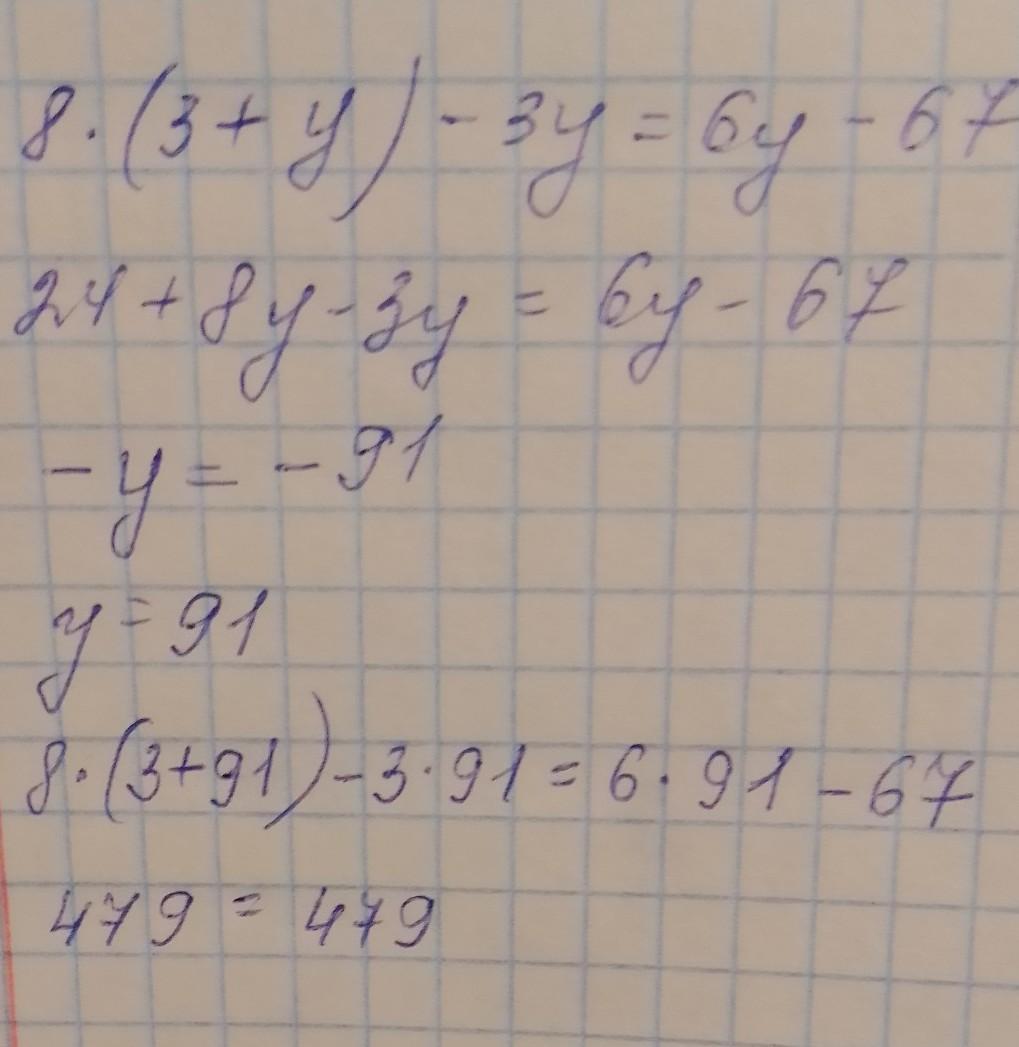 8·(3+y)-3y=6y-67
24+8y-3y=6y-67
-y=-91
y=91
8·(3+91)-3·91=6·91-67
479=479